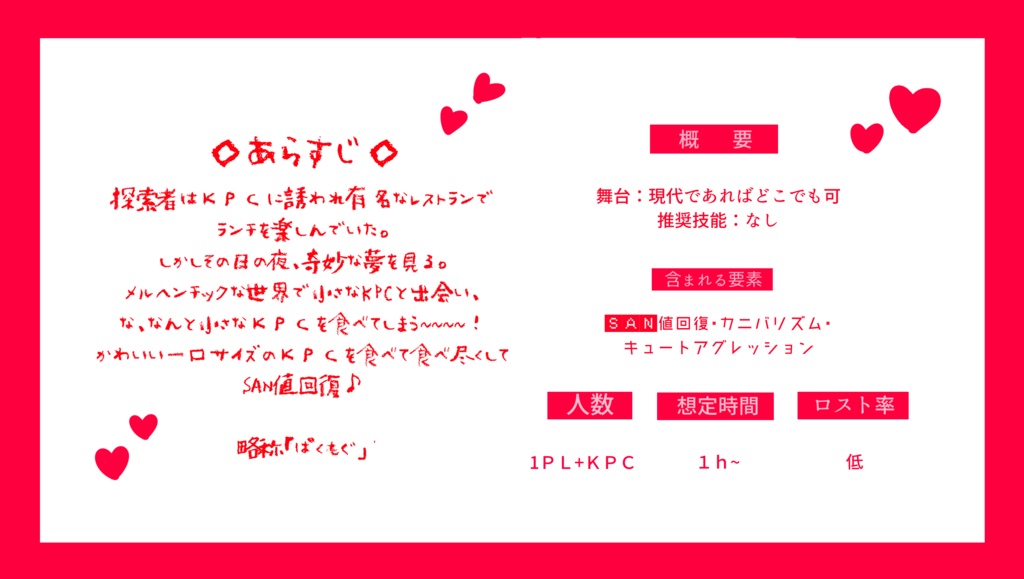 ◇あらすじ◇
探索者はＫＰＣに誘われ有名なレストランで
ランチを楽しんでいた。
しかしその日の夜、奇妙な夢を見る。
メルヘンチックな世界で小さなKPCと出会い、
な、なんと小さなＫＰＣを食べてしまう~~~~！
かわいい一口サイズのＫＰＣを食べて食べ尽くして
SAN値回復♪
略称「ばくもぐ」
概　要
舞台：現代であればどこでも可
推奨技能：なし
含まれる要素
ＳＡＮ値回復・カニバリズム・
キュートアグレッション
人数
1ＰＬ+ＫＰＣ
想定時間
１ｈ~
ロスト率
低